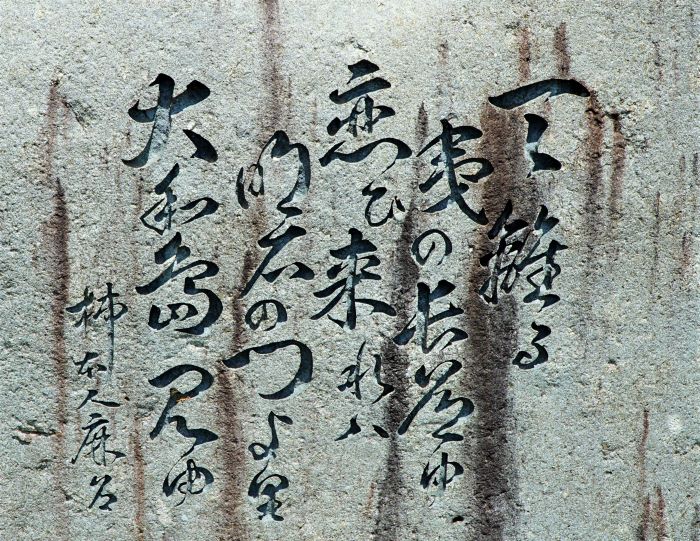 天離る
夷の長道ゆ
恋ひ来れハ
明石の門よ里
大和島見ゆ
柿本人麻呂